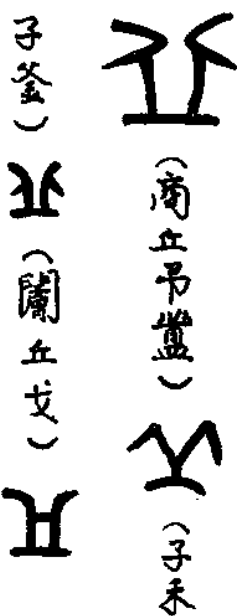 (商丘吊簠)(子禾
子釜)(闌丘戈)